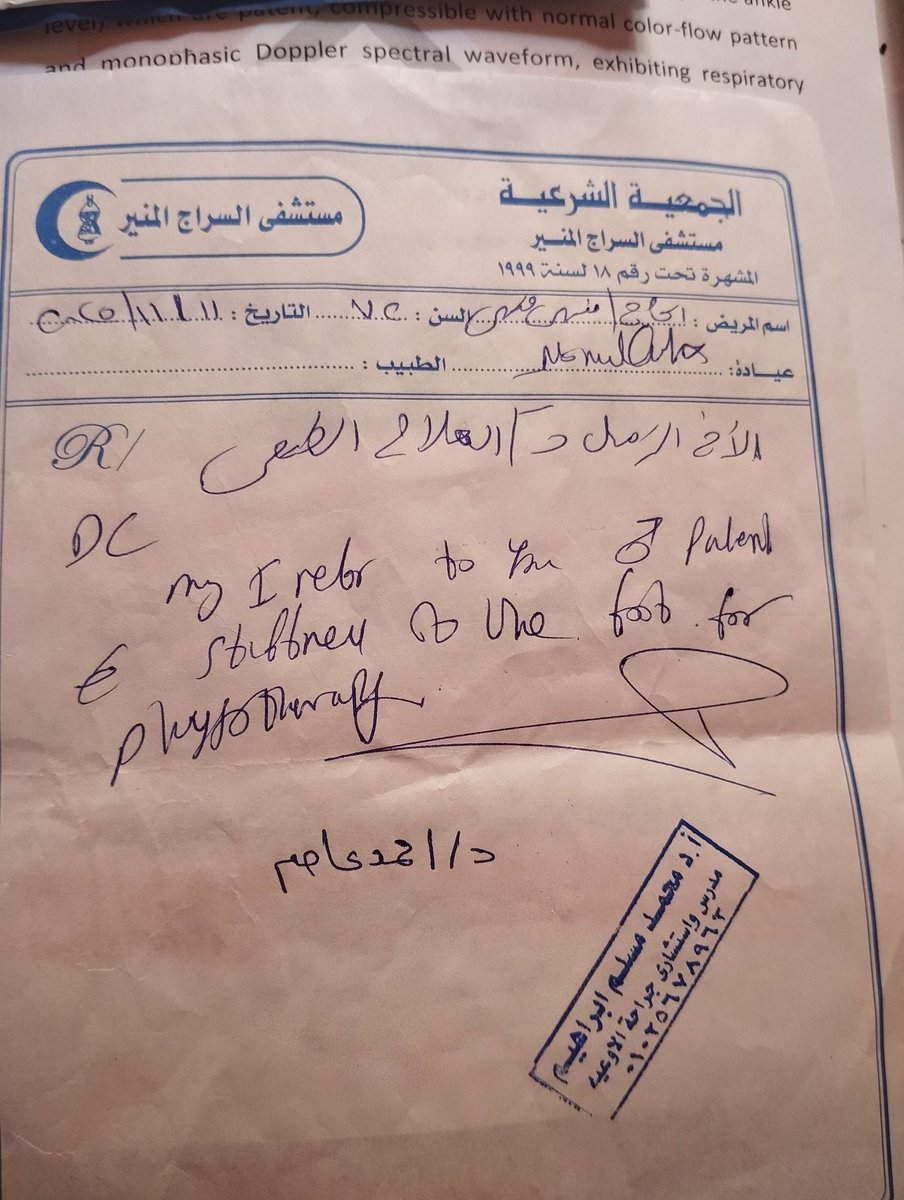 level) which are patent, compressible with normal color-flow pattern
and monophasic Doppler spectral waveform, exhibiting respiratory
الجمعية الشرعية
مستشفى السراج المنير
مستشفى السراج المنير
المشهرة تحت رقم ١٨ لسنة ١٩٩٩
اسم المريض : الحاج / السن : التاريخ :
عيادة : الطبيب :
R/ الأخ الزميل د / العلاج الطبيعي
DC
I refer to you ♂ Patent
stiffness to the foot for
physotherapy
د/ احمد عاصم
أ.د محمد مسلم ابراهيم
مدرس واستشارى جراحة الاوعيه
٠١٠٢٥٦٧٨٩٦٣